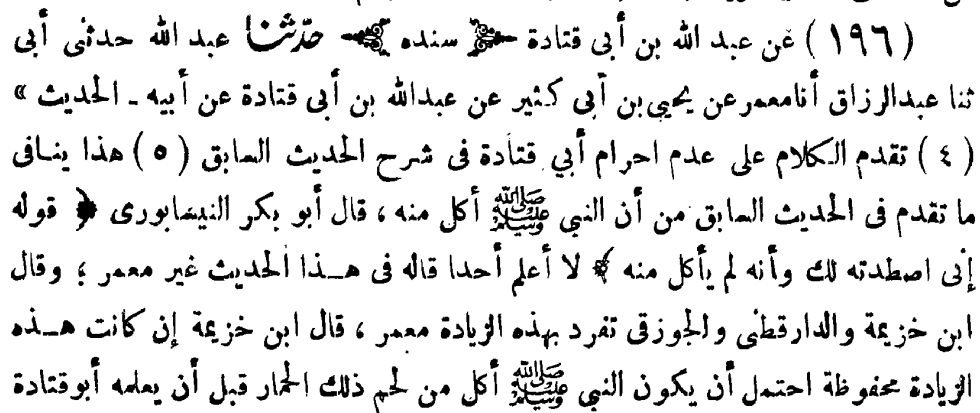 (١٩٦) عن عبد الله بن أبى قتادة ﴿ سنده ﴾ حدّثنا عبد الله حدثنى أبى
ثنا عبدالرزاق أنامعمرعن يحيى بن أبى كثير عن عبدالله بن أبى قتادة عن أبيه ـ الحديث »
(٤) تقدم الكلام على عدم احرام أبي قتادة فى شرح الحديث السابق (٥) هذا ينافى
ما تقدم فى الحديث السابق من أن النبى ﷺ أكل منه ، قال أبو بكر النيسابورى ﴿ قوله
إنى اصطدته لك وأنه لم يأكل منه ﴾ لا أعلم أحدا قاله فى هـذا الحديث غير معمر ؛ وقال
ابن خزيمة والدارقطنى والجوزقى تفرد بهذه الزيادة معمر ، قال ابن خزيمة إن كانت هـذه
الزيادة محفوظة احتمل أن يكون النبى ﷺ أكل من لحم ذلك الحمار قبل أن يعلمه أبوقتادة